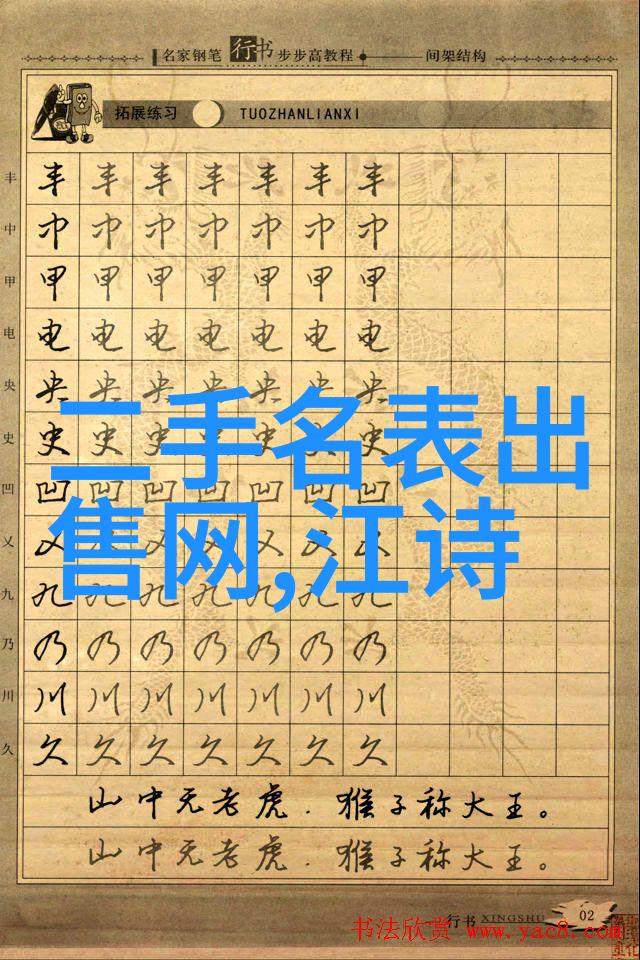 名家钢笔行书步步高教程 间架结构
拓展练习 TUOZHANLIANXI
丰 丰 丰 丰 丰 丰 丰 丰
中 中 中 中 中 中 中 中
甲 甲 甲 甲 甲 甲 甲 甲
电 电 电 电 电 电 电 电
央 央 央 央 央 央 央 央
史 史 史 史 史 史 史 史
二手名表出
凹 凹 凹 凹 凹 凹 凹 凹
售网,江诗
乂 乂 乂 乂 乂 乂 乂 乂
九 九 九 九 九 九 九 九
乃 乃 乃 乃 乃 乃 乃 乃
川 川 川 川 川 川 川 川
久 久 久 久 久 久 久 久
山中无老虎．猴子称大王。
山中无老虎．猴子称大王。
行书 XINGSHU 02
书法欣赏 www.yac8.com